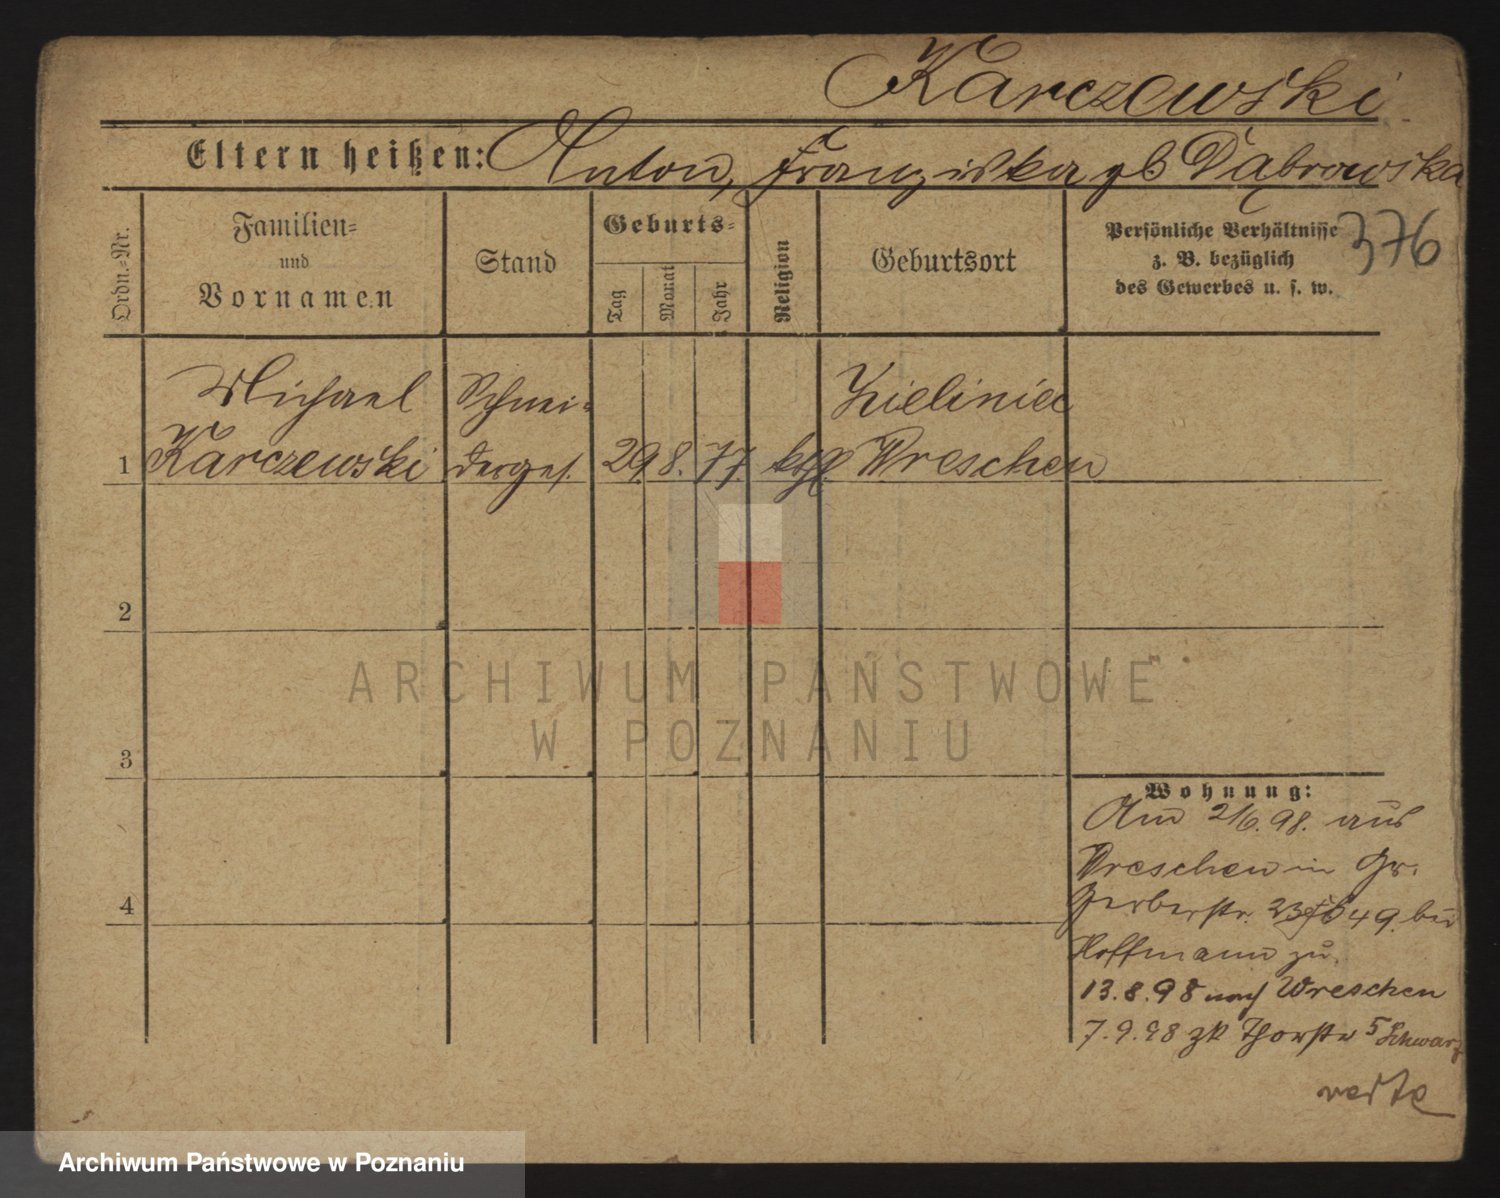 Karczewski
Eltern heißen: Anton, Franziska gb Dąbrowska
Ordn.-Nr.
Familien-
und
Vornamen
Stand
Geburts-
Tag
Monat
Jahr
Religion
Geburtsort
Persönliche Verhältnisse
z. B. bezüglich
des Gewerbes u. s. w.
376
Michael Schnei- Zieliniec
1 Karczewski derges. 29. 8. 77. kthl. Wreschen
2
3
4
Wohnung:
Am 2/6. 98. aus
Wreschen in Gr.
Gerberstr. 49. bei
Hoffmann zu.
13.8.98 nach Wreschen
7.9.98 zk Thorstr 5 Schwarz
verte
ARCHIWUM PAŃSTWOWE
W POZNANIU
Archiwum Państwowe w Poznaniu